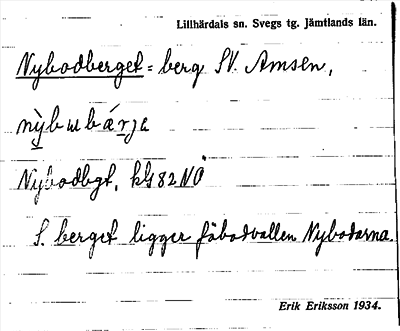 Lillhärdals sn. Svegs tg. Jämtlands län.
Nybodberget = berg SV. Amsen,
Nybodbgt, kbl 82 NO
S. berget ligger fäbodvallen Nybodarna.
Erik Eriksson 1934.